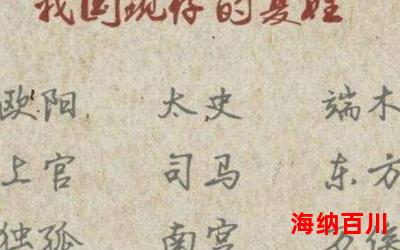 我国现存的复姓
欧阳 太史 端木
上官 司马 东方
独孤 南宫 万俟
海纳百川